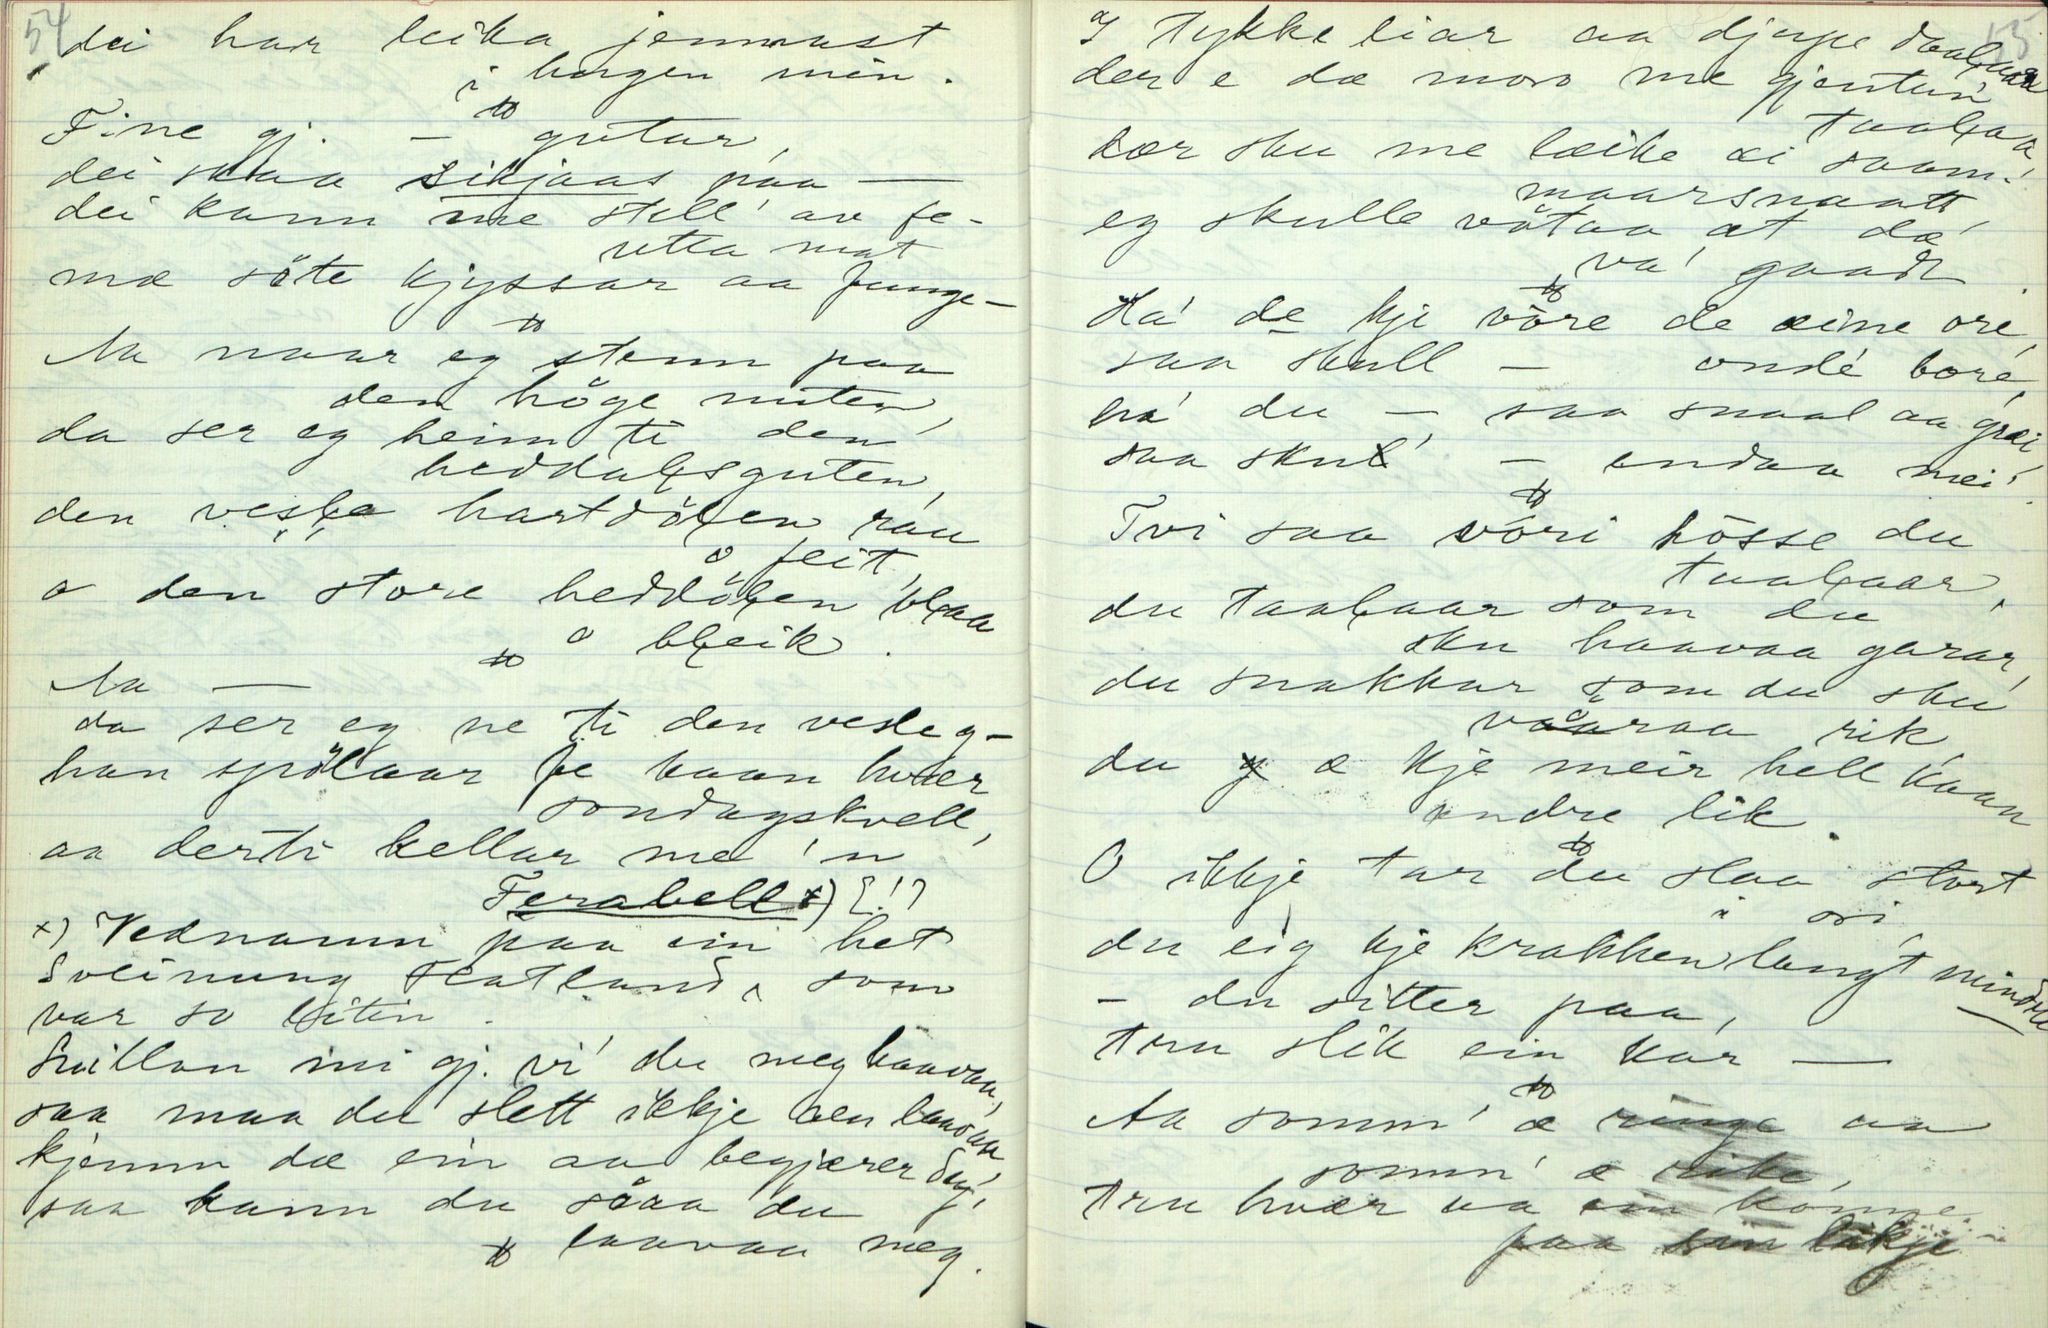 54
dei har leika jemnast
i hugen min.
Fine gj. — gutar,
dei skaa sikjaas paa —
dei kann me still' av fe-
itta mat
mæ söte kjyssar aa funge-
Aa naar eg stenn paa
den höge nuten,
da ser eg heim ti den
heddalsguten,
den vesle hartdölen rau
o feit,
o den store heddölen blaa
o bleik.
Aa —
da ser eg ne ti den vesle g-
han spölaar fe kaan hvær
sondagskvell,
aa derti hellar me 'n
Ferabell x) [!]
x) Vednamn paa ein het
Sveinung Flatland, som
var so liten.
Snillan mi gj. vi' du meg haavaa,
saa maa du slett ikkje aen laavaa
kjenn dæ ein aa begjærer deg,
saa kann du svaa du
laavaa meg.
55
I tykke liar aa djupe daalaar
der e dæ moro me gjentun
taalaa
hær sku me læike æi saam-
maarsnaatt
eg skulle vötaa at dæ
va' gaadt.
Ha' de kje vöre de æine ore,
saa skull — onde' bore,
ha' du — saa snaal aa græi
saa skul' — endaa mei'.
Tvi saa vöri hösse du
taalaar,
du taalaar som du
sku haavaa garar,
du snakkar som du sku
vaaraa rik,
du æ kje meir hell kaan
andre lik.
O ikkje tar du slaa stort
i ori,
du eig kje krakken langt mindre
— du sitter paa,
tru slik ein kar —
Aa somm' æ ringe aa
somm' æ rike,
tru hvær aa ein könne
paa sin likje